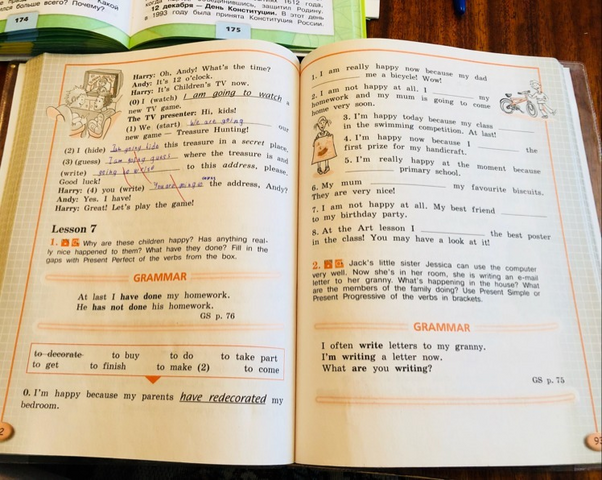 174
12 декабря — День Конституции. В этот день
в 1993 году была принята Конституция России.
175
Harry: Oh, Andy! What's the time?
Andy: It's 12 o'clock.
Harry: It's Children's TV now.
(0) I (watch) I am going to watch a
new TV game.
The TV presenter: Hi, kids!
(1) We (start) We are going our
new game — Treasure Hunting!
(2) I (hide) this treasure in a secret place,
(3) (guess) where the treasure is and
(write) to this address, please.
Good luck!
Harry: (4) you (write) the address, Andy?
Andy: Yes. I have!
Harry: Great! Let's play the game!
Lesson 7
1. Why are these children happy? Has anything real-
ly nice happened to them? What have they done? Fill in the
gaps with Present Perfect of the verbs from the box.
GRAMMAR
At last I have done my homework.
He has not done his homework.
GS p. 76
to decorate to buy to do to take part
to get to finish to make (2) to come
0. I'm happy because my parents have redecorated my
bedroom.
2
1. I am really happy now because my dad
me a bicycle! Wow!
2. I am not happy at all. I my
homework and my mum is going to come
home very soon.
3. I'm happy today because my class
in the swimming competition. At last!
4. I'm happy now because I the
first prize for my handicraft.
5. I'm really happy at the moment because
primary school.
6. My mum my favourite biscuits.
They are very nice!
7. I am not happy at all. My best friend
to my birthday party.
8. At the Art lesson I the best poster
in the class! You may have a look at it!
2. Jack's little sister Jessica can use the computer
very well. Now she's in her room, she is writing an e-mail
letter to her granny. What's happening in the house? What
are the members of the family doing? Use Present Simple or
Present Progressive of the verbs in brackets.
GRAMMAR
I often write letters to my granny.
I'm writing a letter now.
What are you writing?
GS p. 75
93